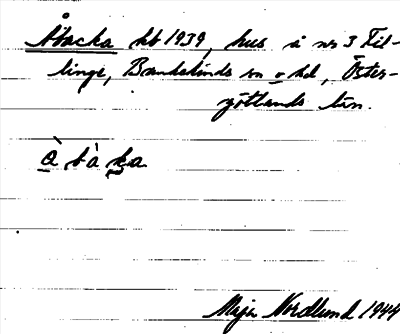 Åbacka hb 1939, hus å nr 3 Fil-
linge, Bankekinds sn o hd, Öster-
götlands län.
å b à ka
Maja Nordlund 1944